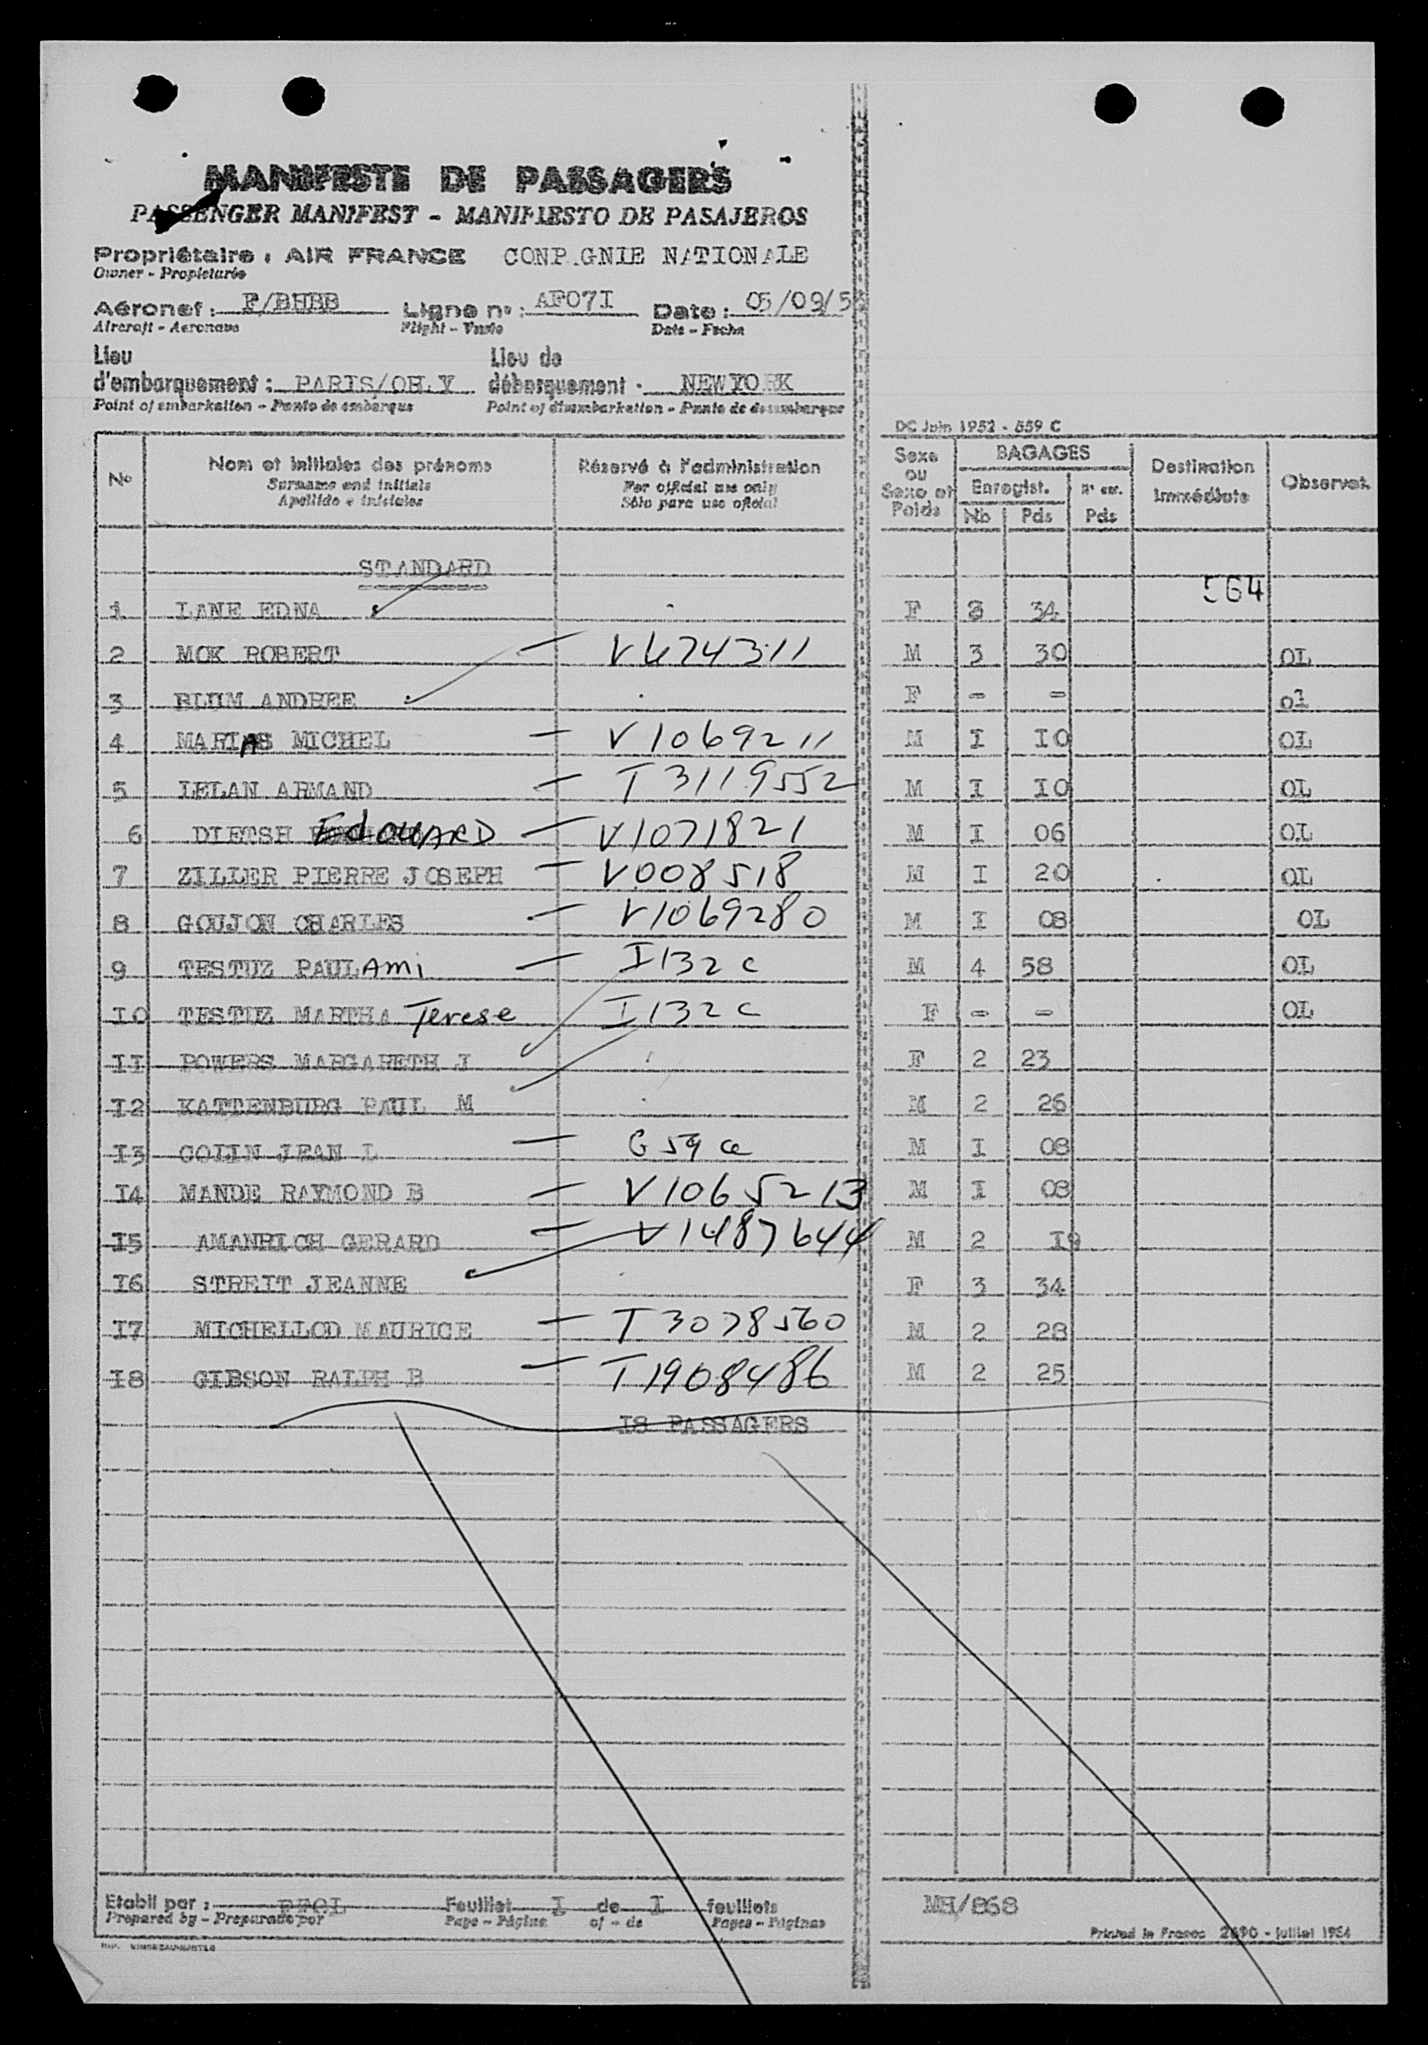 MANIFESTE DE PASSAGERS
PASSENGER MANIFEST - MANIFIESTO DE PASAJEROS
Propriétaire : AIR FRANCE CONP.GNIE NATIONALE
Owner - Propietario
Aéronef : F/BHBB Ligne n° : AF07I Date : 05/09/5
Aircraft - Aeronave Flight - Vuelo Date - Fecha
Lieu d'embarquement : PARIS/ORLY Lieu de débarquement : NEWYORK
Point of embarkation - Punto de embarque Point of disembarkation - Punto de desembarque
DC Juin 1952 - 559 C
N° Nom et initiales des prénoms Réservé à l'administration Sexe ou Sexe et Poids BAGAGES Destination immédiate Observat.
Surname and initials For official use only Enregist. N' enr.
Apellido e iniciales Sólo para uso oficial Nb Pds Pds
STANDARD
564
1 LANE EDNA F 3 34
2 MOK ROBERT — V674311 M 3 30 OL
3 BLUM ANDREE F - - ol
4 MARIAS MICHEL — V1069211 M I IO OL
5 LELAN ARMAND — T3119552 M I IO OL
6 DIETSH EdouARD — V1071821 M I 06 OL
7 ZILLER PIERRE JOSEPH — V008518 M I 20 OL
8 GOUJON CHARLES — V1069280 M I 08 OL
9 TESTUZ PAUL AMi — I132c M 4 58 OL
IO TESTUZ MARTHA Terese I132c F - - OL
II POWERS MARGARETH J F 2 23
I2 KATTENBURG PAUL M M 2 26
I3 COLIN JEAN L — G59ce M I 08
I4 MANDE RAYMOND B — V1065213 M I 08
I5 AMANRICH GERARD — V1487644 M 2 I9
I6 STREIT JEANNE F 3 34
I7 MICHELLOD MAURICE — T3078560 M 2 28
I8 GIBSON RALPH B — T1908486 M 2 25
I8 PASSAGERS
Etabli par : Feuillet I de I feuillets MH/868
Prepared by - Preparado por Page - Página of - de Pages - Páginas
Printed in France 2690 - juillet 1954